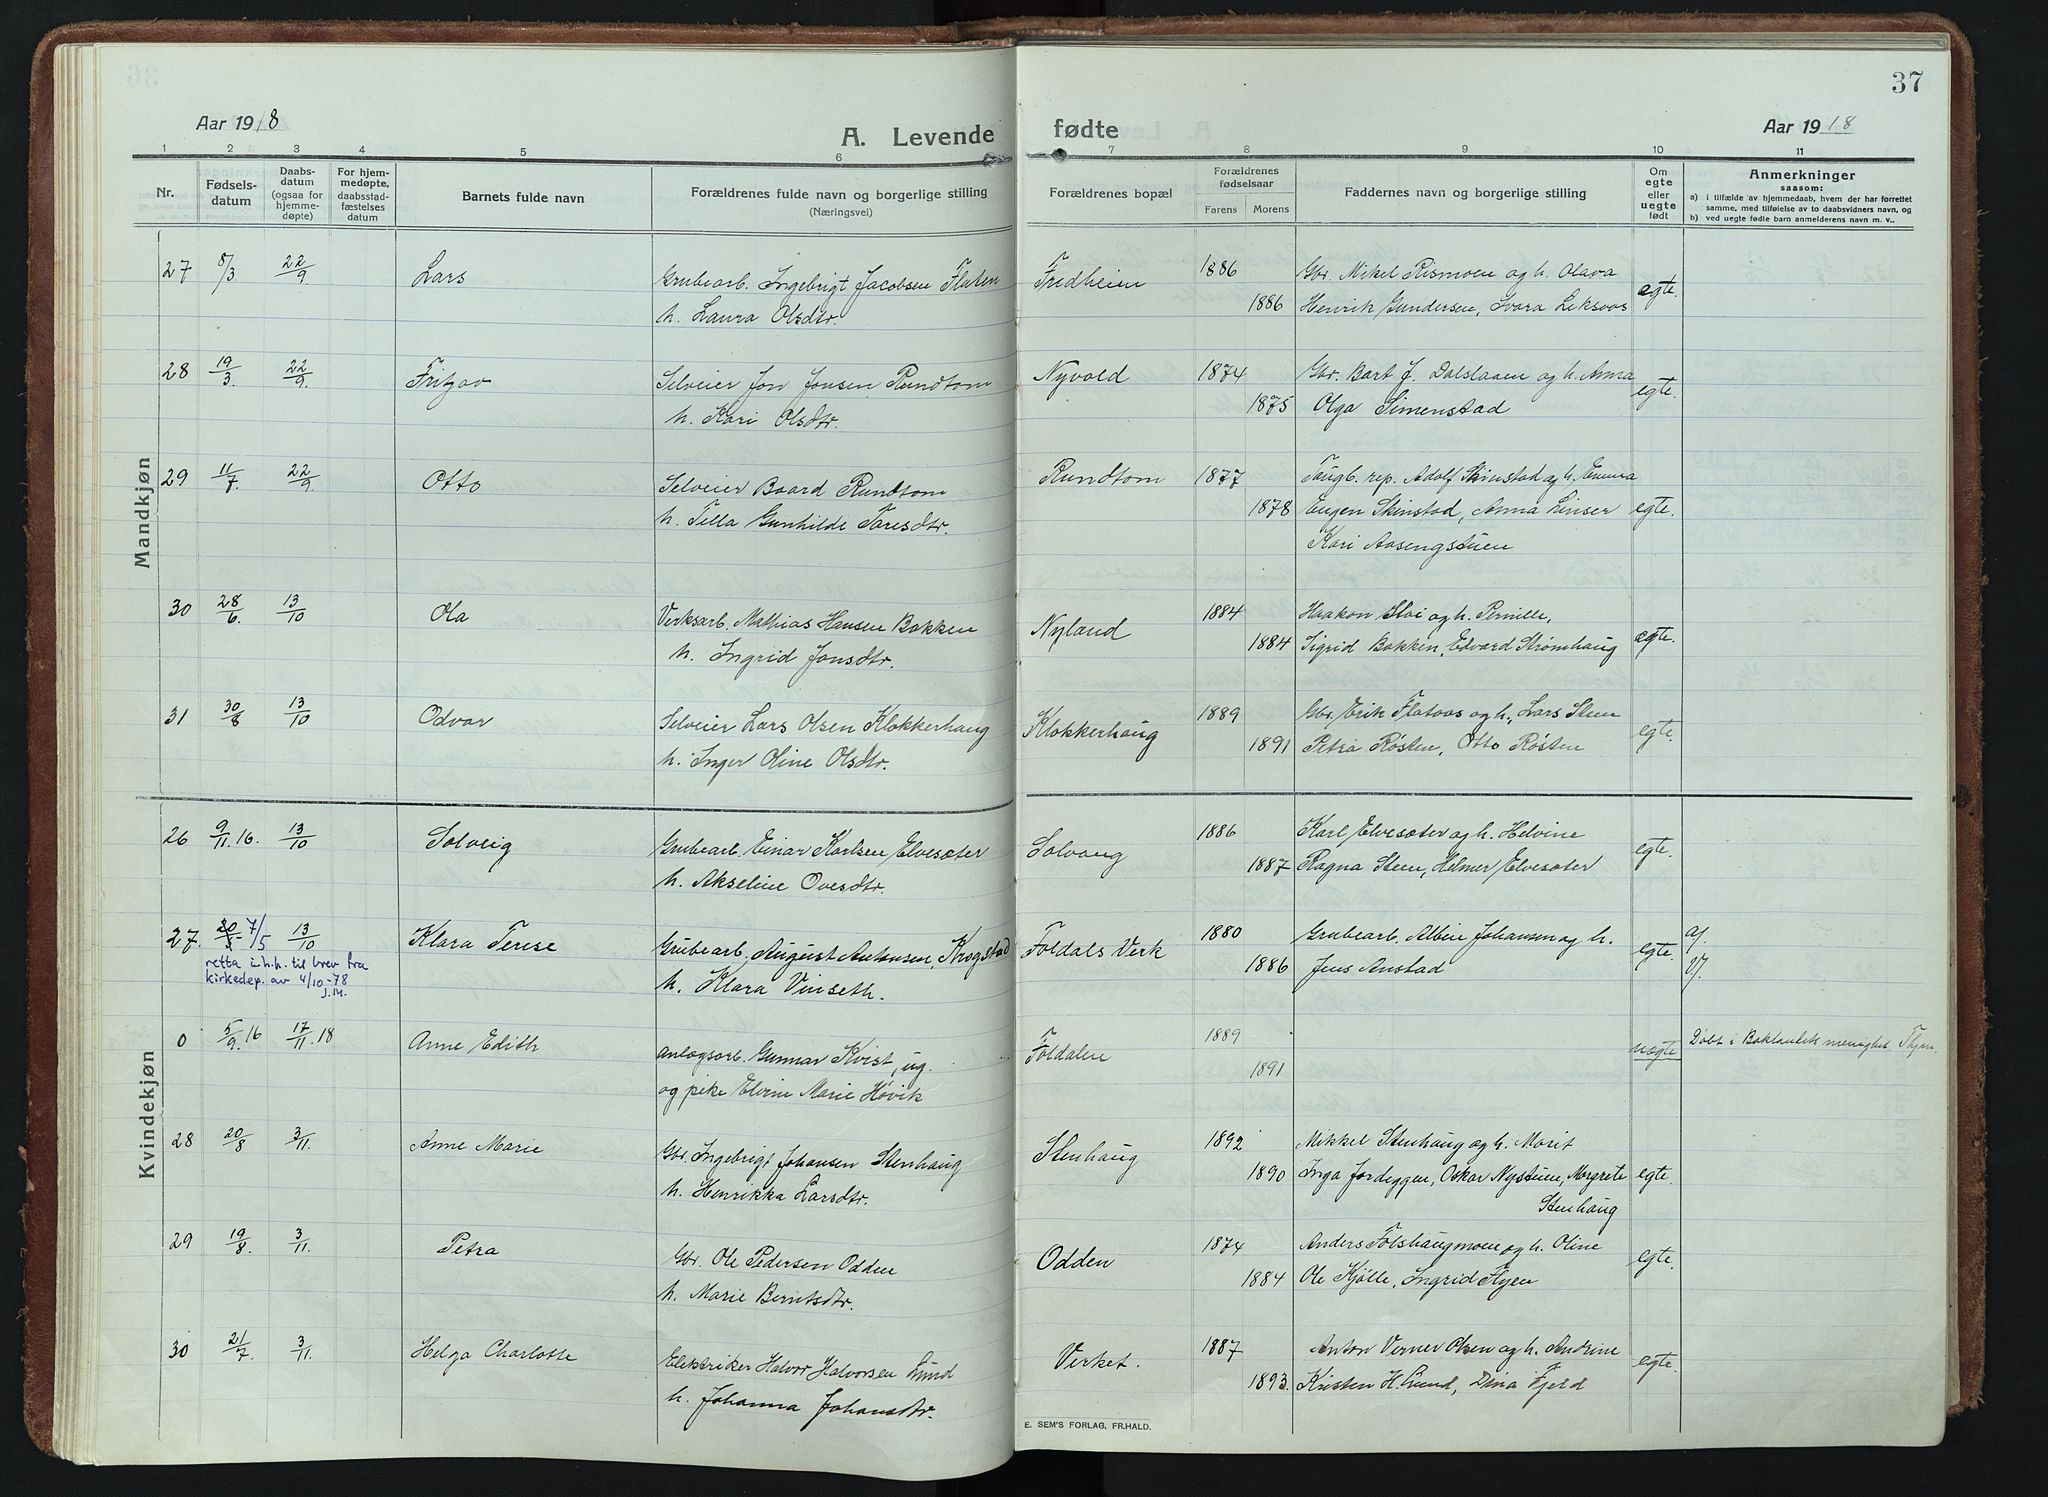 Aar 1918
A. Levende fødte
37
Aar 1918
1 2 3 4 5 6 7 8 9 10 11
Nr.
Fødsels-
datum
Daabs-
datum
(ogsaa for
hjemme-
døpte)
For hjem-
medøpte,
daabsstad-
fæstelses
datum
Barnets fulde navn
Forældrenes fulde navn og borgerlige stilling
(Næringsvei)
Forældrenes bopæl
Forældrenes
fødselsaar
Farens Morens
Faddernes navn og borgerlige stilling
Om
egte
eller
uegte
født
Anmerkninger
saasom:
a) i tilfælde av hjemmedaab, hvem der har forrettet
samme, med tilføielse av to daabsvidners navn, og
b) ved uegte fødte barn anmelderens navn m. v..
Mandkjøn
27 8/3 22/9 Lars Grubearb. Ingebrigt Jacobsen Flaten Fredheim 1886 Gbr. Mikel Rismoen og h. Olava
h. Laura Olsdtr. 1886 Henrik Gundersen, Svara Leksvos egte.
28 19/3 22/9. Fritjov Selveier Jon Jonsen Rundtom Nyvold 1874 Gbr. Bart J. Dalslaaen og h. Anna
h. Kari Olsdtr. 1875 Olga Simenstad egte.
29 11/7 22/9. Otto Selveier Baard Rundtom Rundtom 1877 Taugb. rep. Adolf Skinstad og h. Emma
h. Tella Gunhilde Taresdtr. 1878 Eugen Skinstad, Anna Linser egte.
Kari Aasengstuen
30 28/6. 13/10 Ola Verksarb. Mathias Hansen Bakken Nyland 1884 Haakon Stai og h. Pernille,
h. Ingrid Jonsdtr. 1884 Sigrid Bakken, Edvard Strømhaug egte.
31 30/8 13/10 Odvar Selveier Lars Olsen Klokkerhaug Klokkerhaug 1889 Gbr. Erik Flataas og h., Lars Steen
h. Inger Oline Olsdtr. 1891 Petra Røsten, Otto Røsten egte.
Kvindekjøn
26 9/11. 16. 13/10 Solveig Grubearb. Einar Karlsen Elvesæter Solvang 1886 Karl Elvesæter og h. Helvine
h. Akseline Ovesdtr. 1887 Ragna Steen, Helmer Elvesæter egte.
27. 20/5 7/5 13/10 Klara Terese Grubearb. August Antonsen, Krogstad Foldals Verk 1880 Grubearb. Albin Johansen og h. a).
retta i.h.h. til brev fra
kirkedep. av 4/10-78
J.M.
h. Klara Vinseth. 1886 Jens Anstad egte.
0 5/9. 16 17/11. 18 Anne Edith anlægsarb. Gunnar Kvist, ug. Foldalen 1889 uegte Døbt i menighet
og pike Elvine Marie Høvik 1891
28 20/8 3/11. Anne Marie Gbr. Ingebrigt Johansen Stenhaug Stenhaug 1892 Mikkel Stenhaug og h. Marit
h. Henrikka Larsdtr. 1890 Inga Jordeggen, Oskar Nystuen, Margrete egte.
Stenhaug
29 19/8. 3/11. Petra Gbr. Ole Pedersen Odden Odden 1874 Anders Folshaugmoen og h. Oline
h. Marie Berntsdtr. 1884 Ole Kjølle, Ingrid Flyen egte.
30 21/7. 3/11. Helga Charlotte Elektriker Halvor Halvorsen Lund Verket. 1887 Anton Verner Olsen og h. Andrine
h. Johanna Johansdtr. 1893. Kristen H. Lund, Dina Fjeld egte.
E. SEM'S FORLAG, FR.HALD.